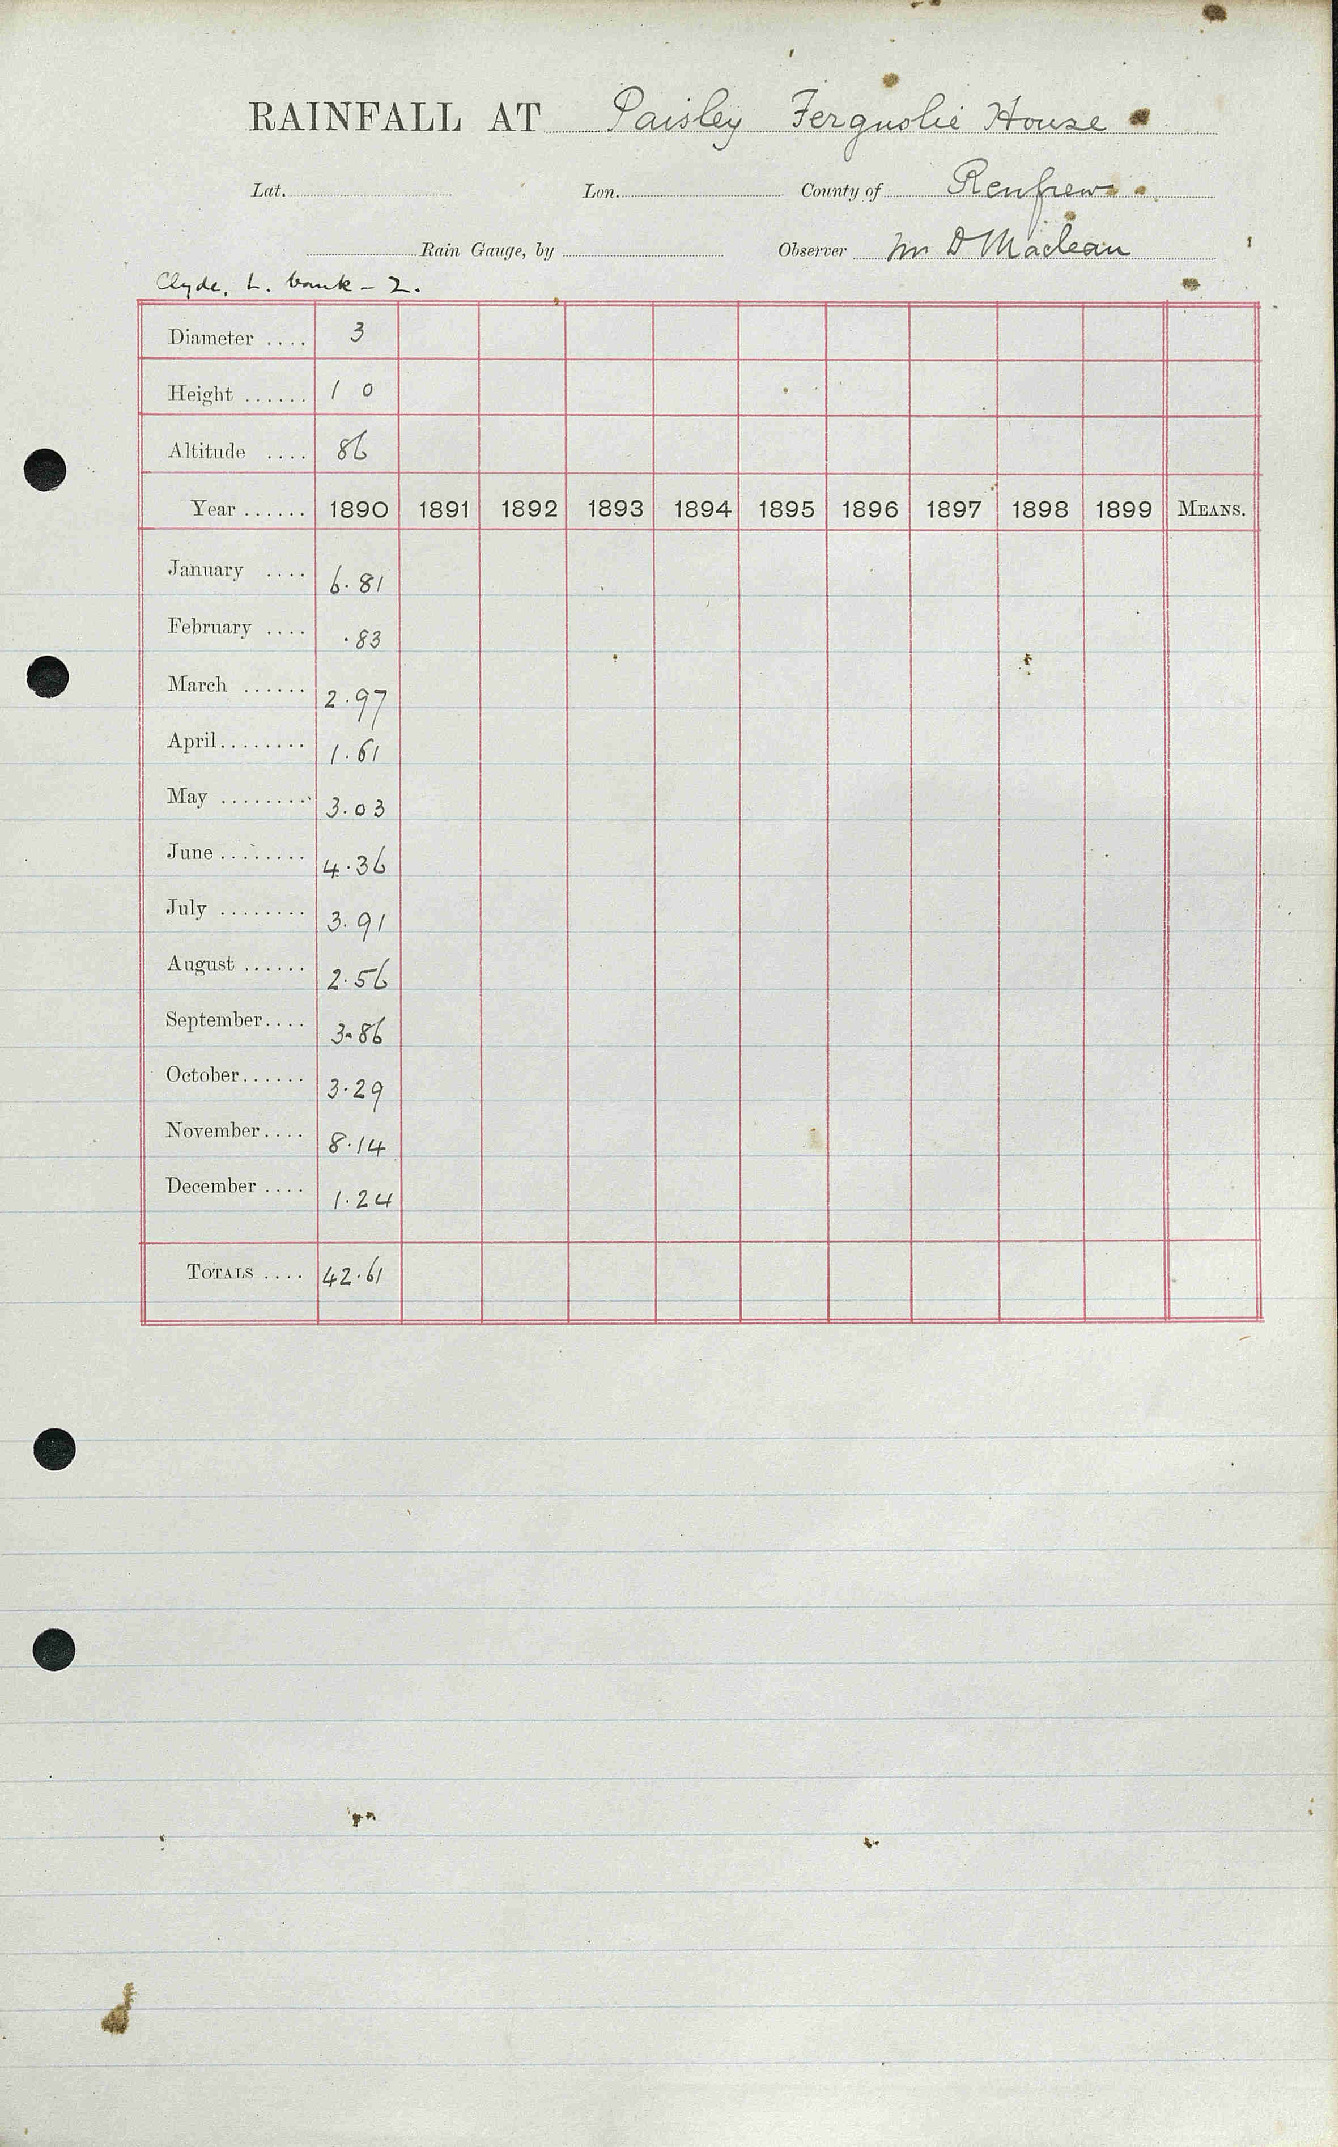 RAINFALL AT Paisley Ferguslie House
Lat. Lon. County of Renfrew
Rain Gauge, by Observer Mr D Maclean
Clyde. L. bank - 2.
Diameter .... 3
Height ...... 1 0
Altitude .... 86
Year ...... 1890 1891 1892 1893 1894 1895 1896 1897 1898 1899 MEANS.
January .... 6.81
February .... .83
March ...... 2.97
April........ 1.61
May ........ 3.03
June........ 4.36
July ........ 3.91
August ...... 2.56
September.... 3.86
October...... 3.29
November.... 8.14
December .... 1.24
TOTALS .... 42.61